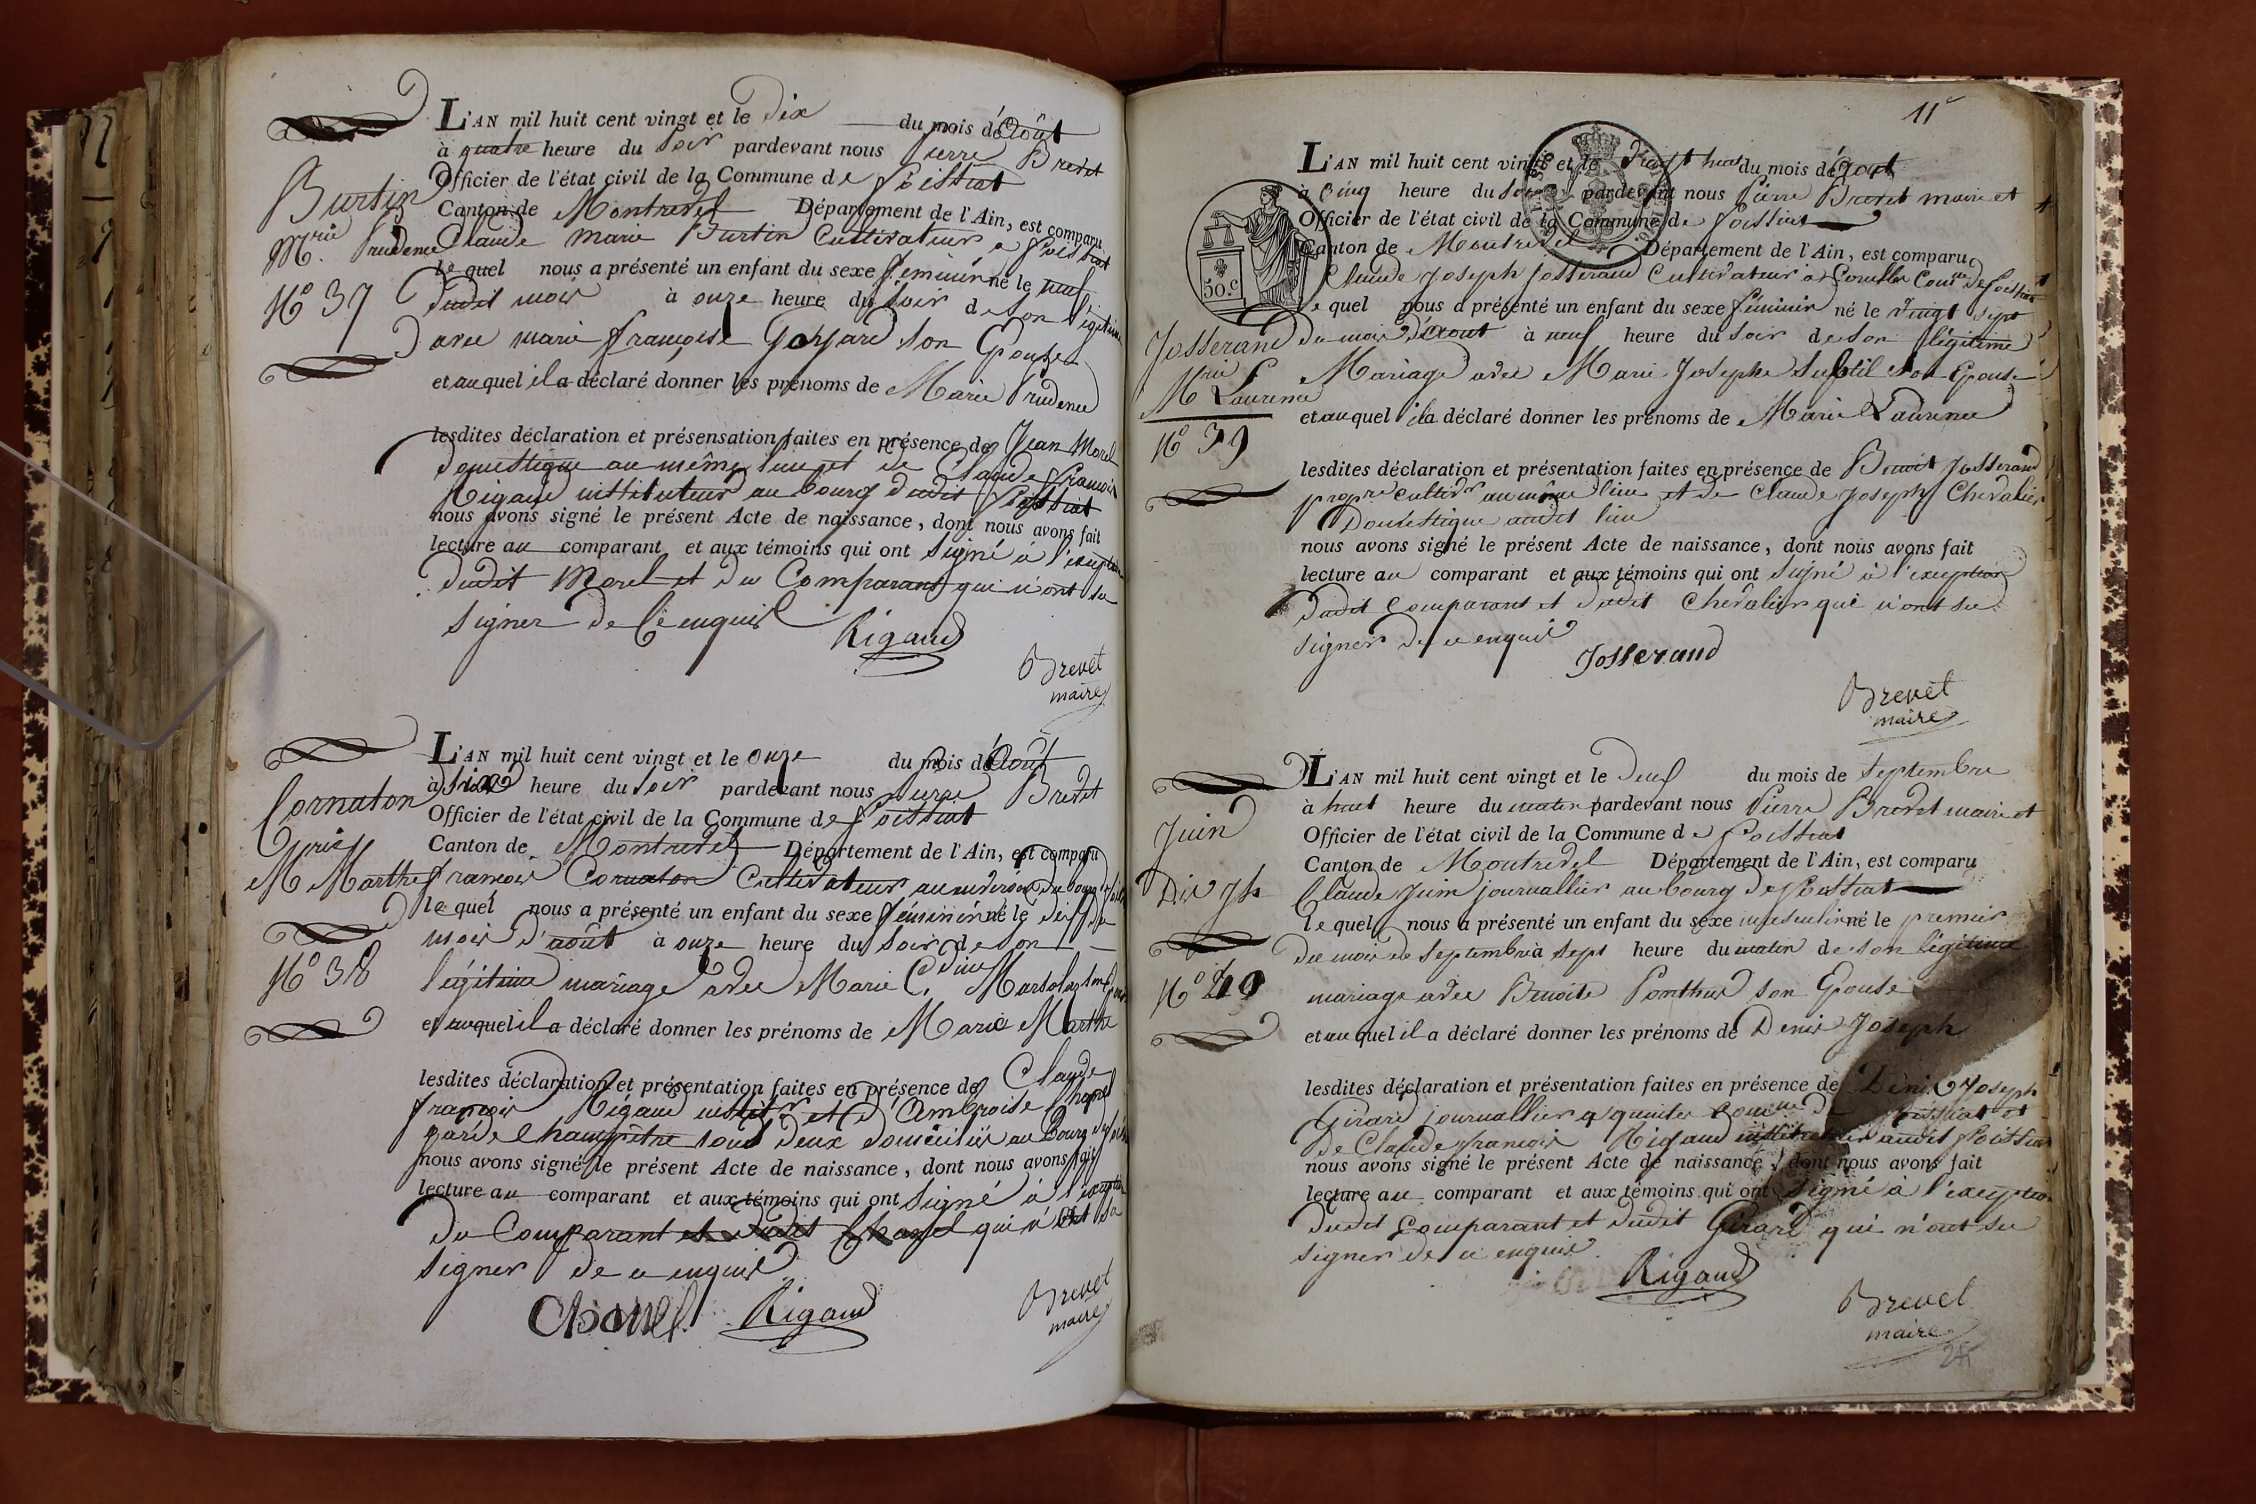 L'AN mil huit cent vingt et le dix du mois d'Août
à quatre heure du soir pardevant nous Pierre Brevet
Officier de l'état civil de la Commune de Foissiat
Canton de Montrevel Département de l'Ain, est comparu
Burtin
Mrie Prudence
N° 37
Claude Marie Burtin Cultivateur a Foissiat
lequel nous a présenté un enfant du sexe féminin né le neuf
dudit mois à onze heure du soir de son légitime
avec marie françoise Goyard son Epouse
et auquel il a déclaré donner les prénoms de Marie Prudence
lesdites déclaration et présensation faites en présence de Jean Morel
domestique au même lieu et de Claude françois
Rigaud instituteur au bourg dudit Foissiat
nous avons signé le présent Acte de naissance, dont nous avons fait
lecture au comparant et aux témoins qui ont signé à l'exception
dudit Morel et du Comparant qui n'ont su
signer de ce enquis
Rigaud
Brevet
maire
L'AN mil huit cent vingt et le onze du mois d'Août
à six heure du soir pardevant nous Pierre Brevet
Officier de l'état civil de la Commune de Foissiat
Canton de Montrevel Département de l'Ain, est comparu
Cornaton
Mrie Marthe
N° 38
françois Cornaton Cultivateur au du bourg
lequel nous a présenté un enfant du sexe féminin né le dix du
mois d'août à onze heure du soir de son
légitime mariage avec Marie Cdine
et auquel il a déclaré donner les prénoms de Marie Marthe
lesdites déclaration et présentation faites en présence de Claude
françois Rigaud institr et d'Ambroise Chanel
garde Champêtre tous deux domiciliés au Bourg de
nous avons signé le présent Acte de naissance, dont nous avons fait
lecture au comparant et aux témoins qui ont signé à l'exception
du Comparant et dudit Chanel qui n'ont su
signer de ce enquis
Chanel Rigaud
Brevet
maire
11e
L'AN mil huit cent vingt et le vingt huit du mois d'Aout
à cinq heure du soir pardevant nous Pierre Brevet maire et
Officier de l'état civil de la Commune de Foissiat
Canton de Montrevel Département de l'Ain, est comparu
50.c
Claude Joseph Josserand Cultivateur a Comme de Foissiat
lequel nous a présenté un enfant du sexe féminin né le vingt sept
Josserand
Mrie Laurence
N° 39
du mois d'Aout à neuf heure du soir de son légitime
Mariage avec Marie Josephe Subtil son Epouse
et auquel il a déclaré donner les prénoms de Marie Laurence
lesdites déclaration et présentation faites en présence de Benoit Josserand
propre cultivr au même lieu et de Claude Joseph Chevalier
Domestique audit lieu
nous avons signé le présent Acte de naissance, dont nous avons fait
lecture au comparant et aux témoins qui ont signé à l'exception
dudit Comparant et dudit Chevalier qui n'ont su
signer de ce enquis
Josserand
Brevet
maire
L'AN mil huit cent vingt et le deux du mois de septembre
à huit heure du matin pardevant nous Pierre Brevet maire et
Officier de l'état civil de la Commune de Foissiat
Canton de Montrevel Département de l'Ain, est comparu
Juin
Dis Jh
N° 40
Claude Juin journallier au bourg de Foissiat
lequel nous a présenté un enfant du sexe masculin né le premier
du mois de septembre à sept heure du matin de son légitime
mariage avec Benoite Ponthus son Epouse
et auquel il a déclaré donner les prénoms de Denis Joseph
lesdites déclaration et présentation faites en présence de Denis Joseph
Girard journallier a Comune de Foissiat et
de Claude françois Rigaud instituteur audit Foissiat
nous avons signé le présent Acte de naissance, dont nous avons fait
lecture au comparant et aux témoins qui ont signé à l'exception
dudit Comparant et dudit Girard qui n'ont su
signer de ce enquis
Rigaud
Brevet
maire